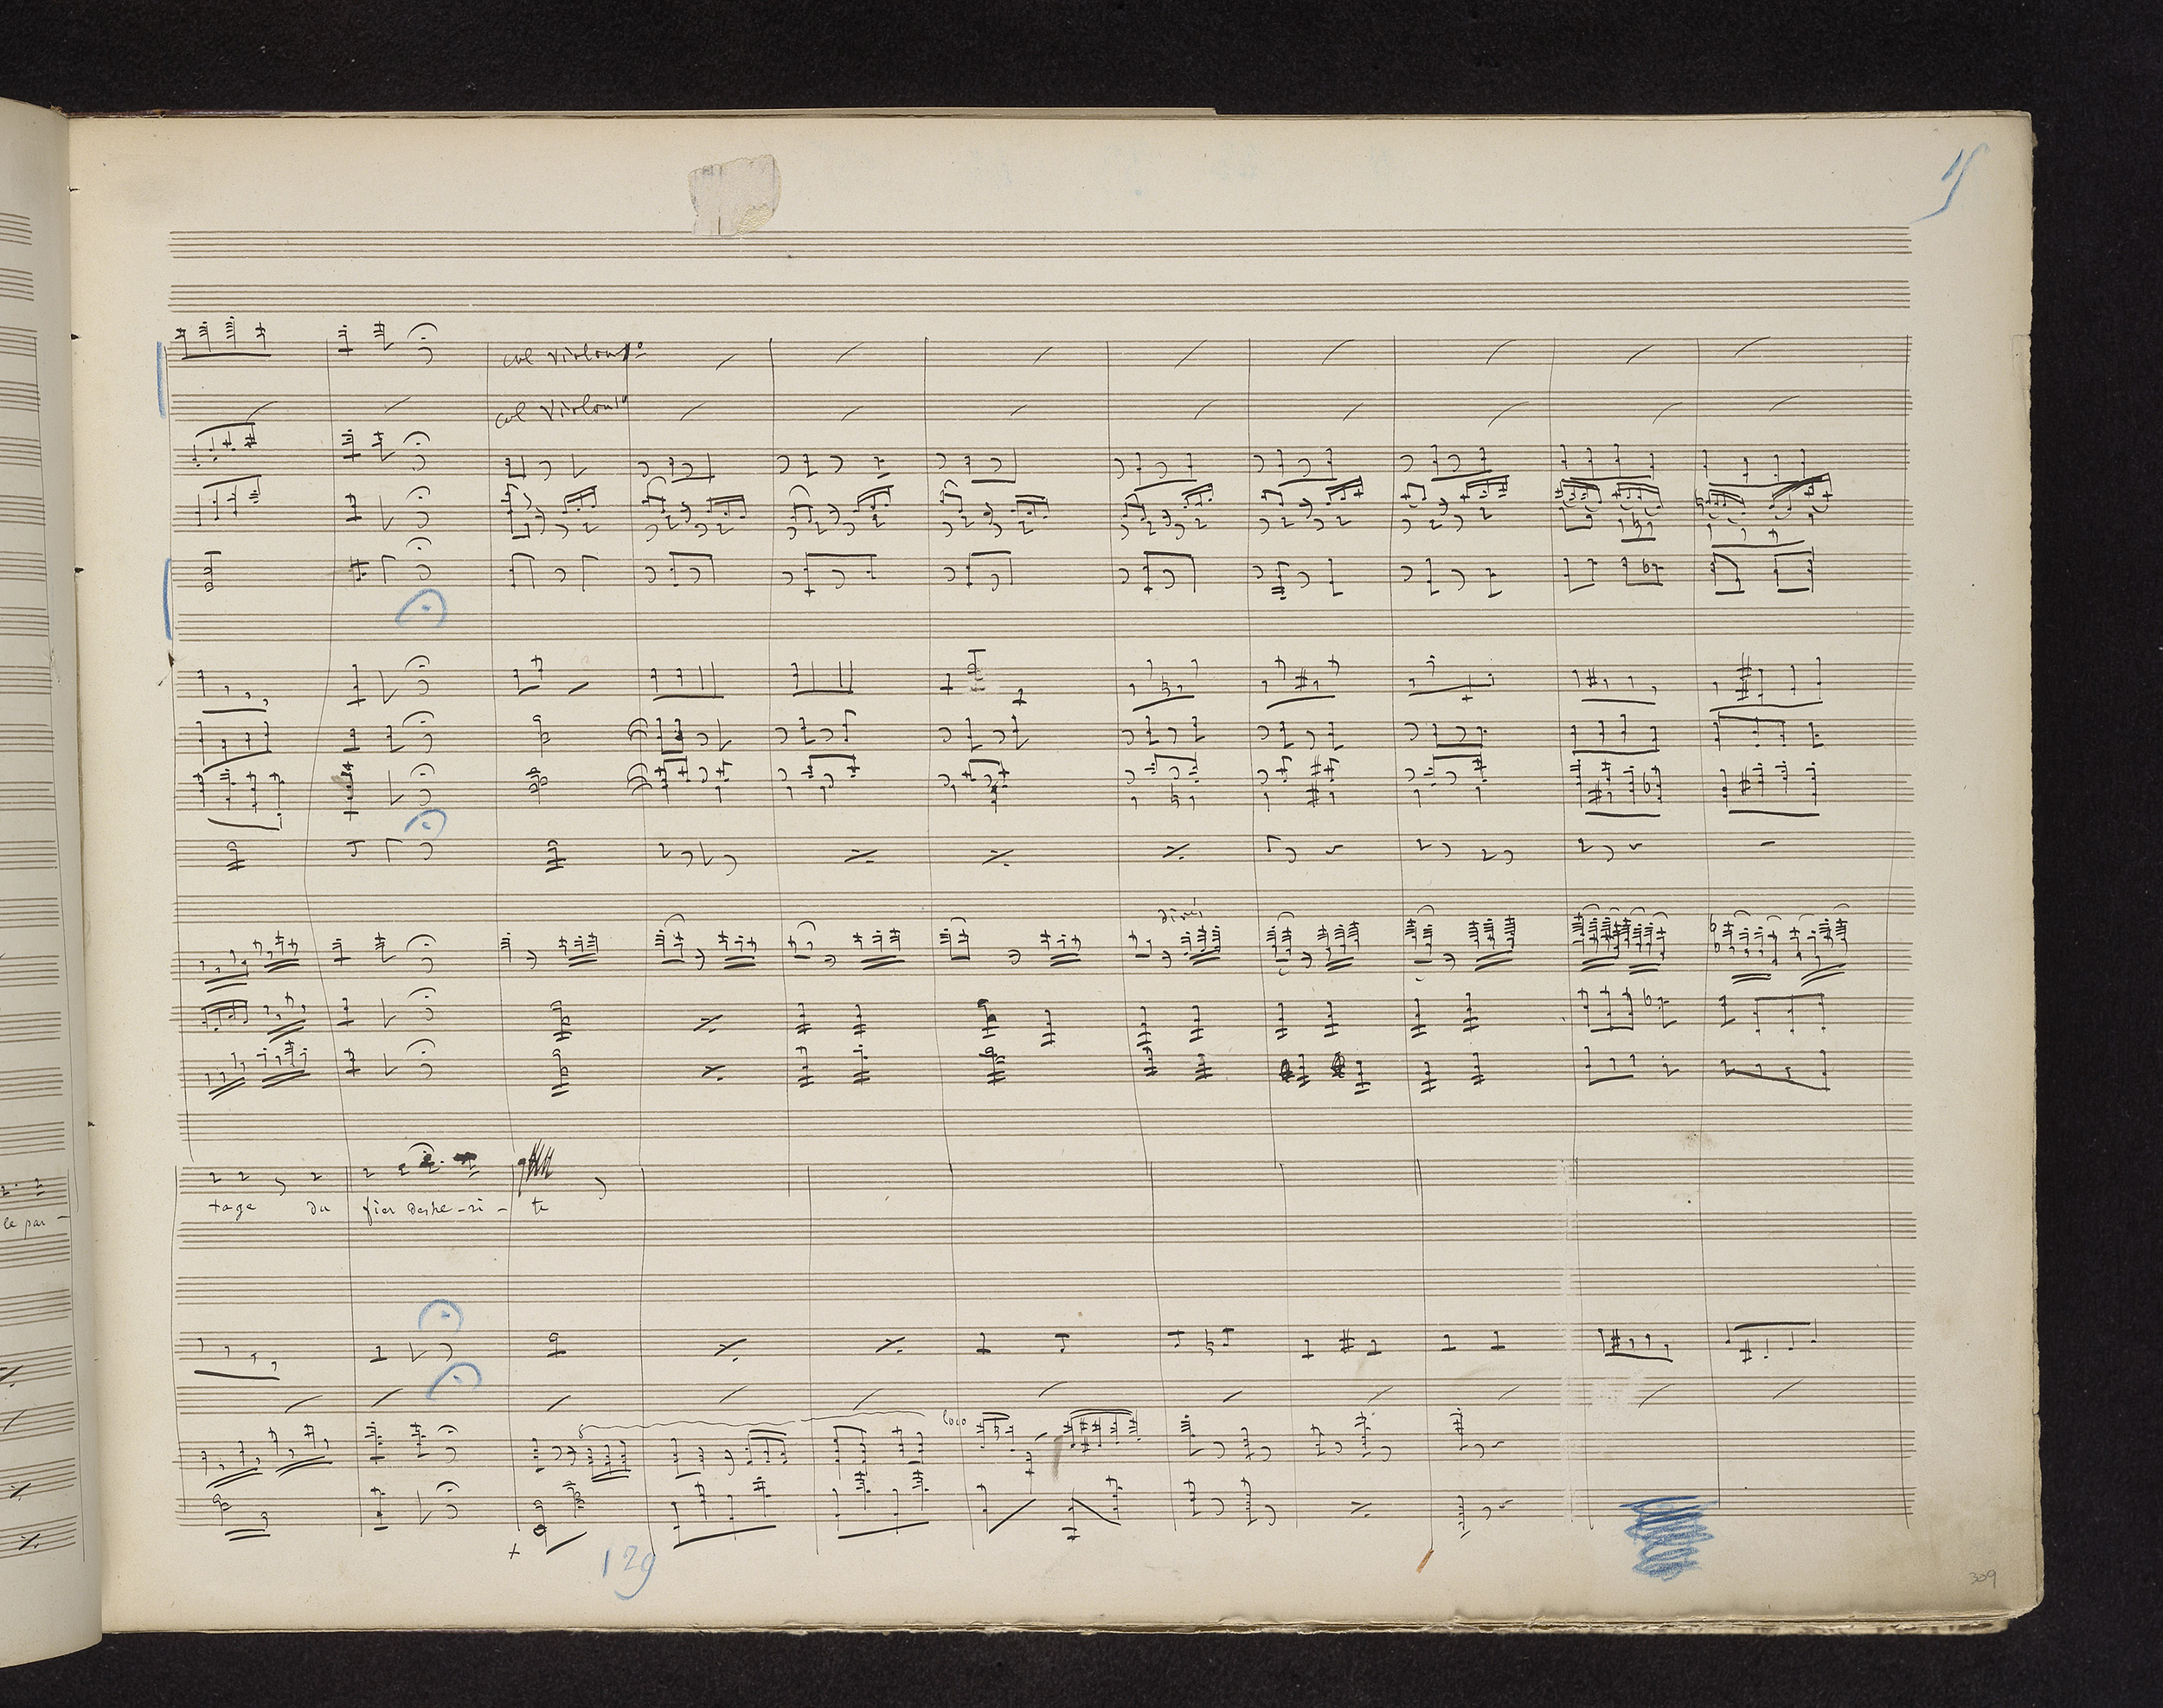 col Violon 1º
col Violon 1º
divisi
tage du fier deshe-ri-te
le par-
loco
129
309